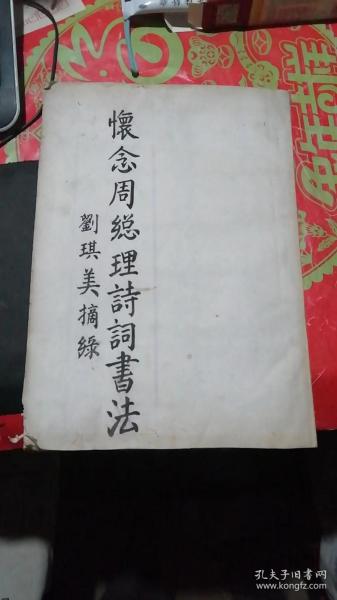 懷念周總理詩詞書法
劉琪美摘綠
孔夫子旧书网
www.kongfz.com